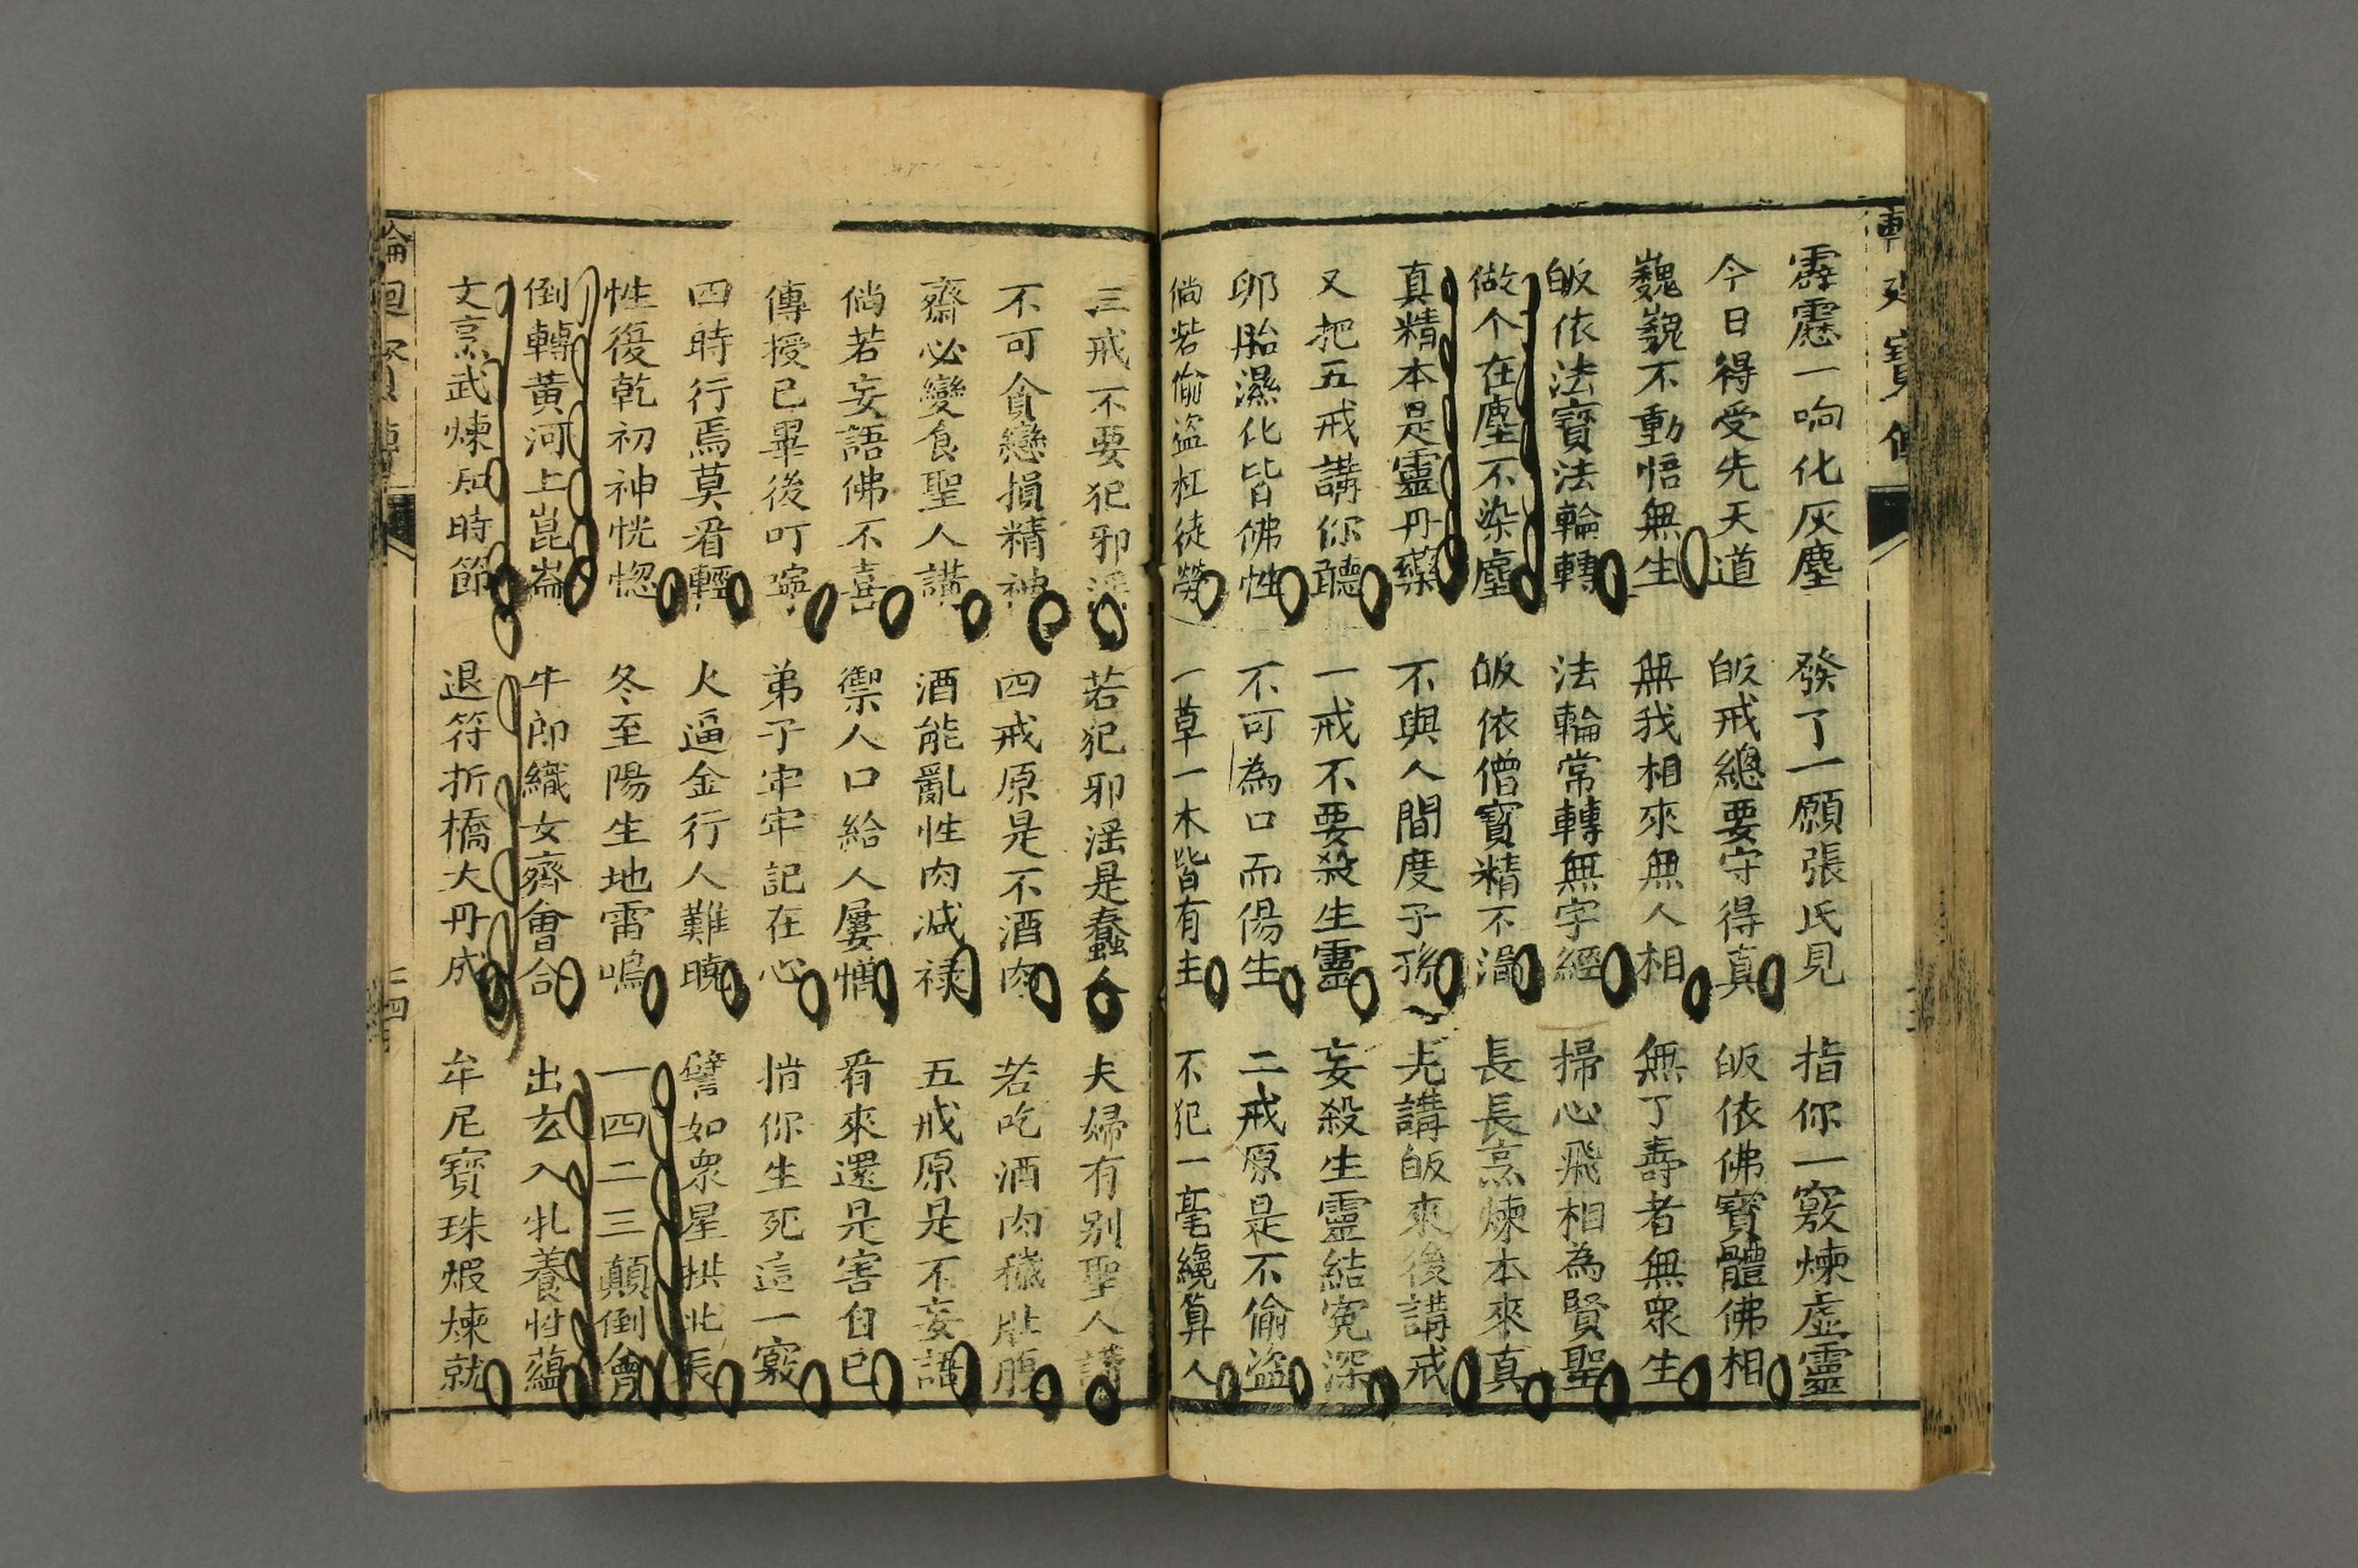 霹靂一响化灰塵 發了一願張氏見 指你一竅煉虛靈
今日得受先天道 皈戒總要守得真 皈依佛寶體佛相
巍巍不動悟無生 無我相來無人相 無了壽者無衆生
皈依法寶法輪轉 法輪常轉無字經 掃心飛相為賢聖
做个在塵不染塵 皈依僧寶精不漏 長長烹煉本來真
真精本是靈丹藥 不與人間度子孫 先講皈來後講戒
又把五戒講你聽 一戒不要殺生靈 妄殺生靈結寃深
卵胎濕化皆佛性 不可為口而傷生 二戒原是不偷盜
倘若偷盜枉徒勞 一草一木皆有主 不犯一毫纔算人
三戒不要犯邪淫 若犯邪淫是蠢人 夫婦有别聖人講
不可貪戀損精神 四戒原是不酒肉 若吃酒肉穢肚腹
齋必變食聖人講 酒能亂性肉減禄 五戒原是不妄語
倘若妄語佛不喜 禦人口給人屢憎 看來還是害自己
傳授已畢後叮嚀 弟子牢牢記在心 指你生死這一竅
四時行焉莫看輕 火逼金行人難曉 譬如衆星拱北辰
性復乾初神恍惚 冬至陽生地雷鳴 一四二三顛倒會
倒轉黃河上崑崙 牛郎織女齊會合 出玄入牝養性蘊
文烹武煉知時節 退符折橋大丹成 牟尼寶珠煆煉就
輪廻寶傳